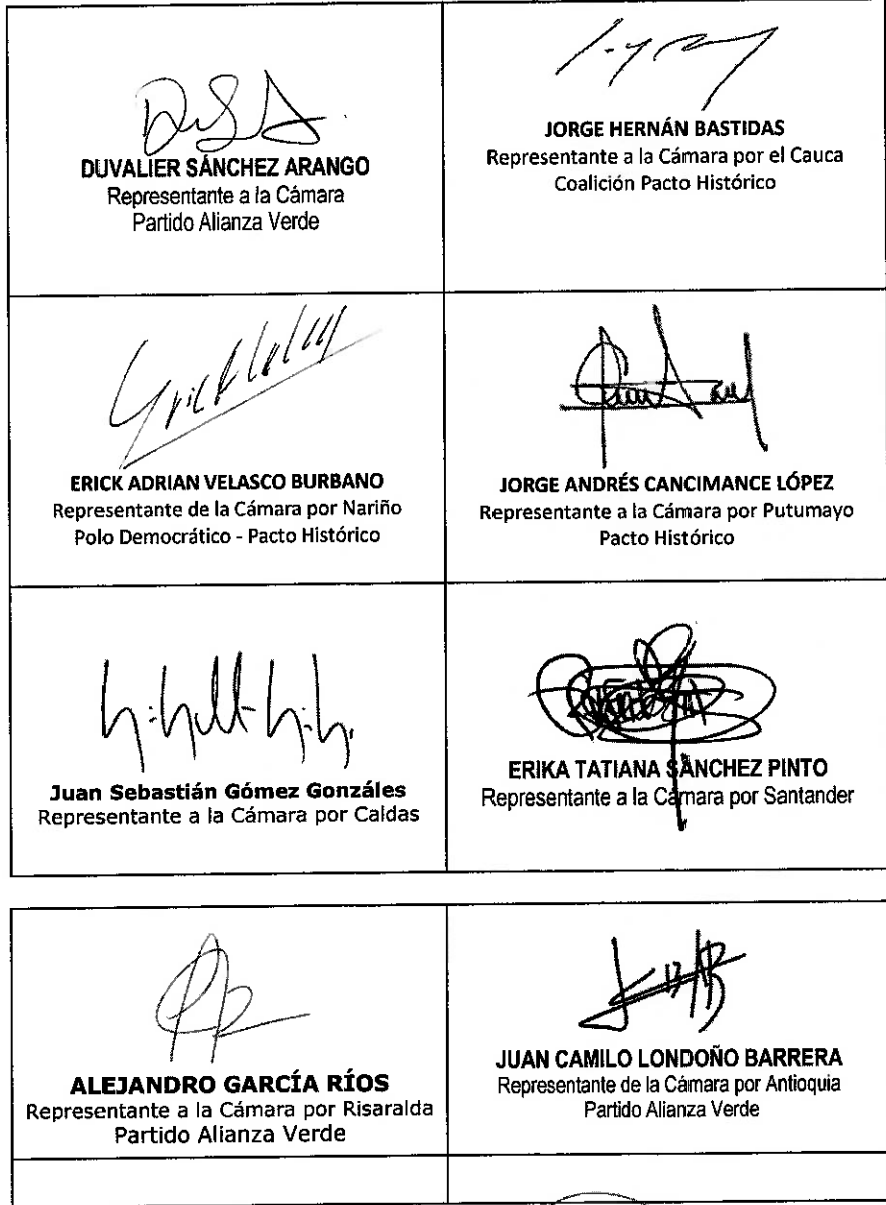 DUVALIER SÁNCHEZ ARANGO
Representante a la Cámara
Partido Alianza Verde
JORGE HERNÁN BASTIDAS
Representante a la Cámara por el Cauca
Coalición Pacto Histórico
ERICK ADRIAN VELASCO BURBANO
Representante de la Cámara por Nariño
Polo Democrático - Pacto Histórico
JORGE ANDRÉS CANCIMANCE LÓPEZ
Representante a la Cámara por Putumayo
Pacto Histórico
Juan Sebastián Gómez Gonzáles
Representante a la Cámara por Caldas
ERIKA TATIANA SÁNCHEZ PINTO
Representante a la Cámara por Santander
ALEJANDRO GARCÍA RÍOS
Representante a la Cámara por Risaralda
Partido Alianza Verde
JUAN CAMILO LONDOÑO BARRERA
Representante de la Cámara por Antioquia
Partido Alianza Verde